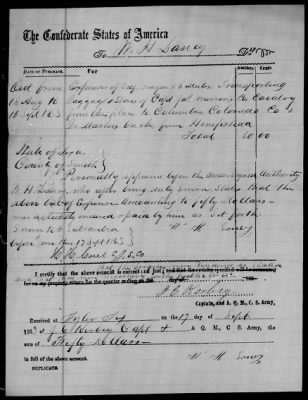 The Confederate States of America
To W. H. Laney Dr.
DATE OF PURCHASE. For Dollars. Cents.
Act from Expenses of Self, wagon & mules, Transporting
18 Aug to Baggage & Stores of Capt Co Cavalry
18 Sept 1863 from this place to Columbus Colorado Co &
back from Hempstead
Total 50.00
State of Texas
County of Smith
Personally appeared before the undersigned Authority
W. H. Laney, who after being duly sworn, States that the
above bill of Expenses Amounting to fifty Dollars
was actually incurred & paid by him as set forth
Sworn to & subscribed
before me this 17 Sept 1863 W. H. Laney
C.J.S.Co
I certify that the above account is correct and just; and that the articles specified
on my property return for the quarter ending the day of 186
Captain, and A. Q. M., C. S. Army.
Received at Tyler Tex on the 17 day of Sept
1863 of Capt & A. Q. M., C. S. Army, the
sum of Fifty Dollars
in full of the above account. W. H. Laney
DUPLICATE.